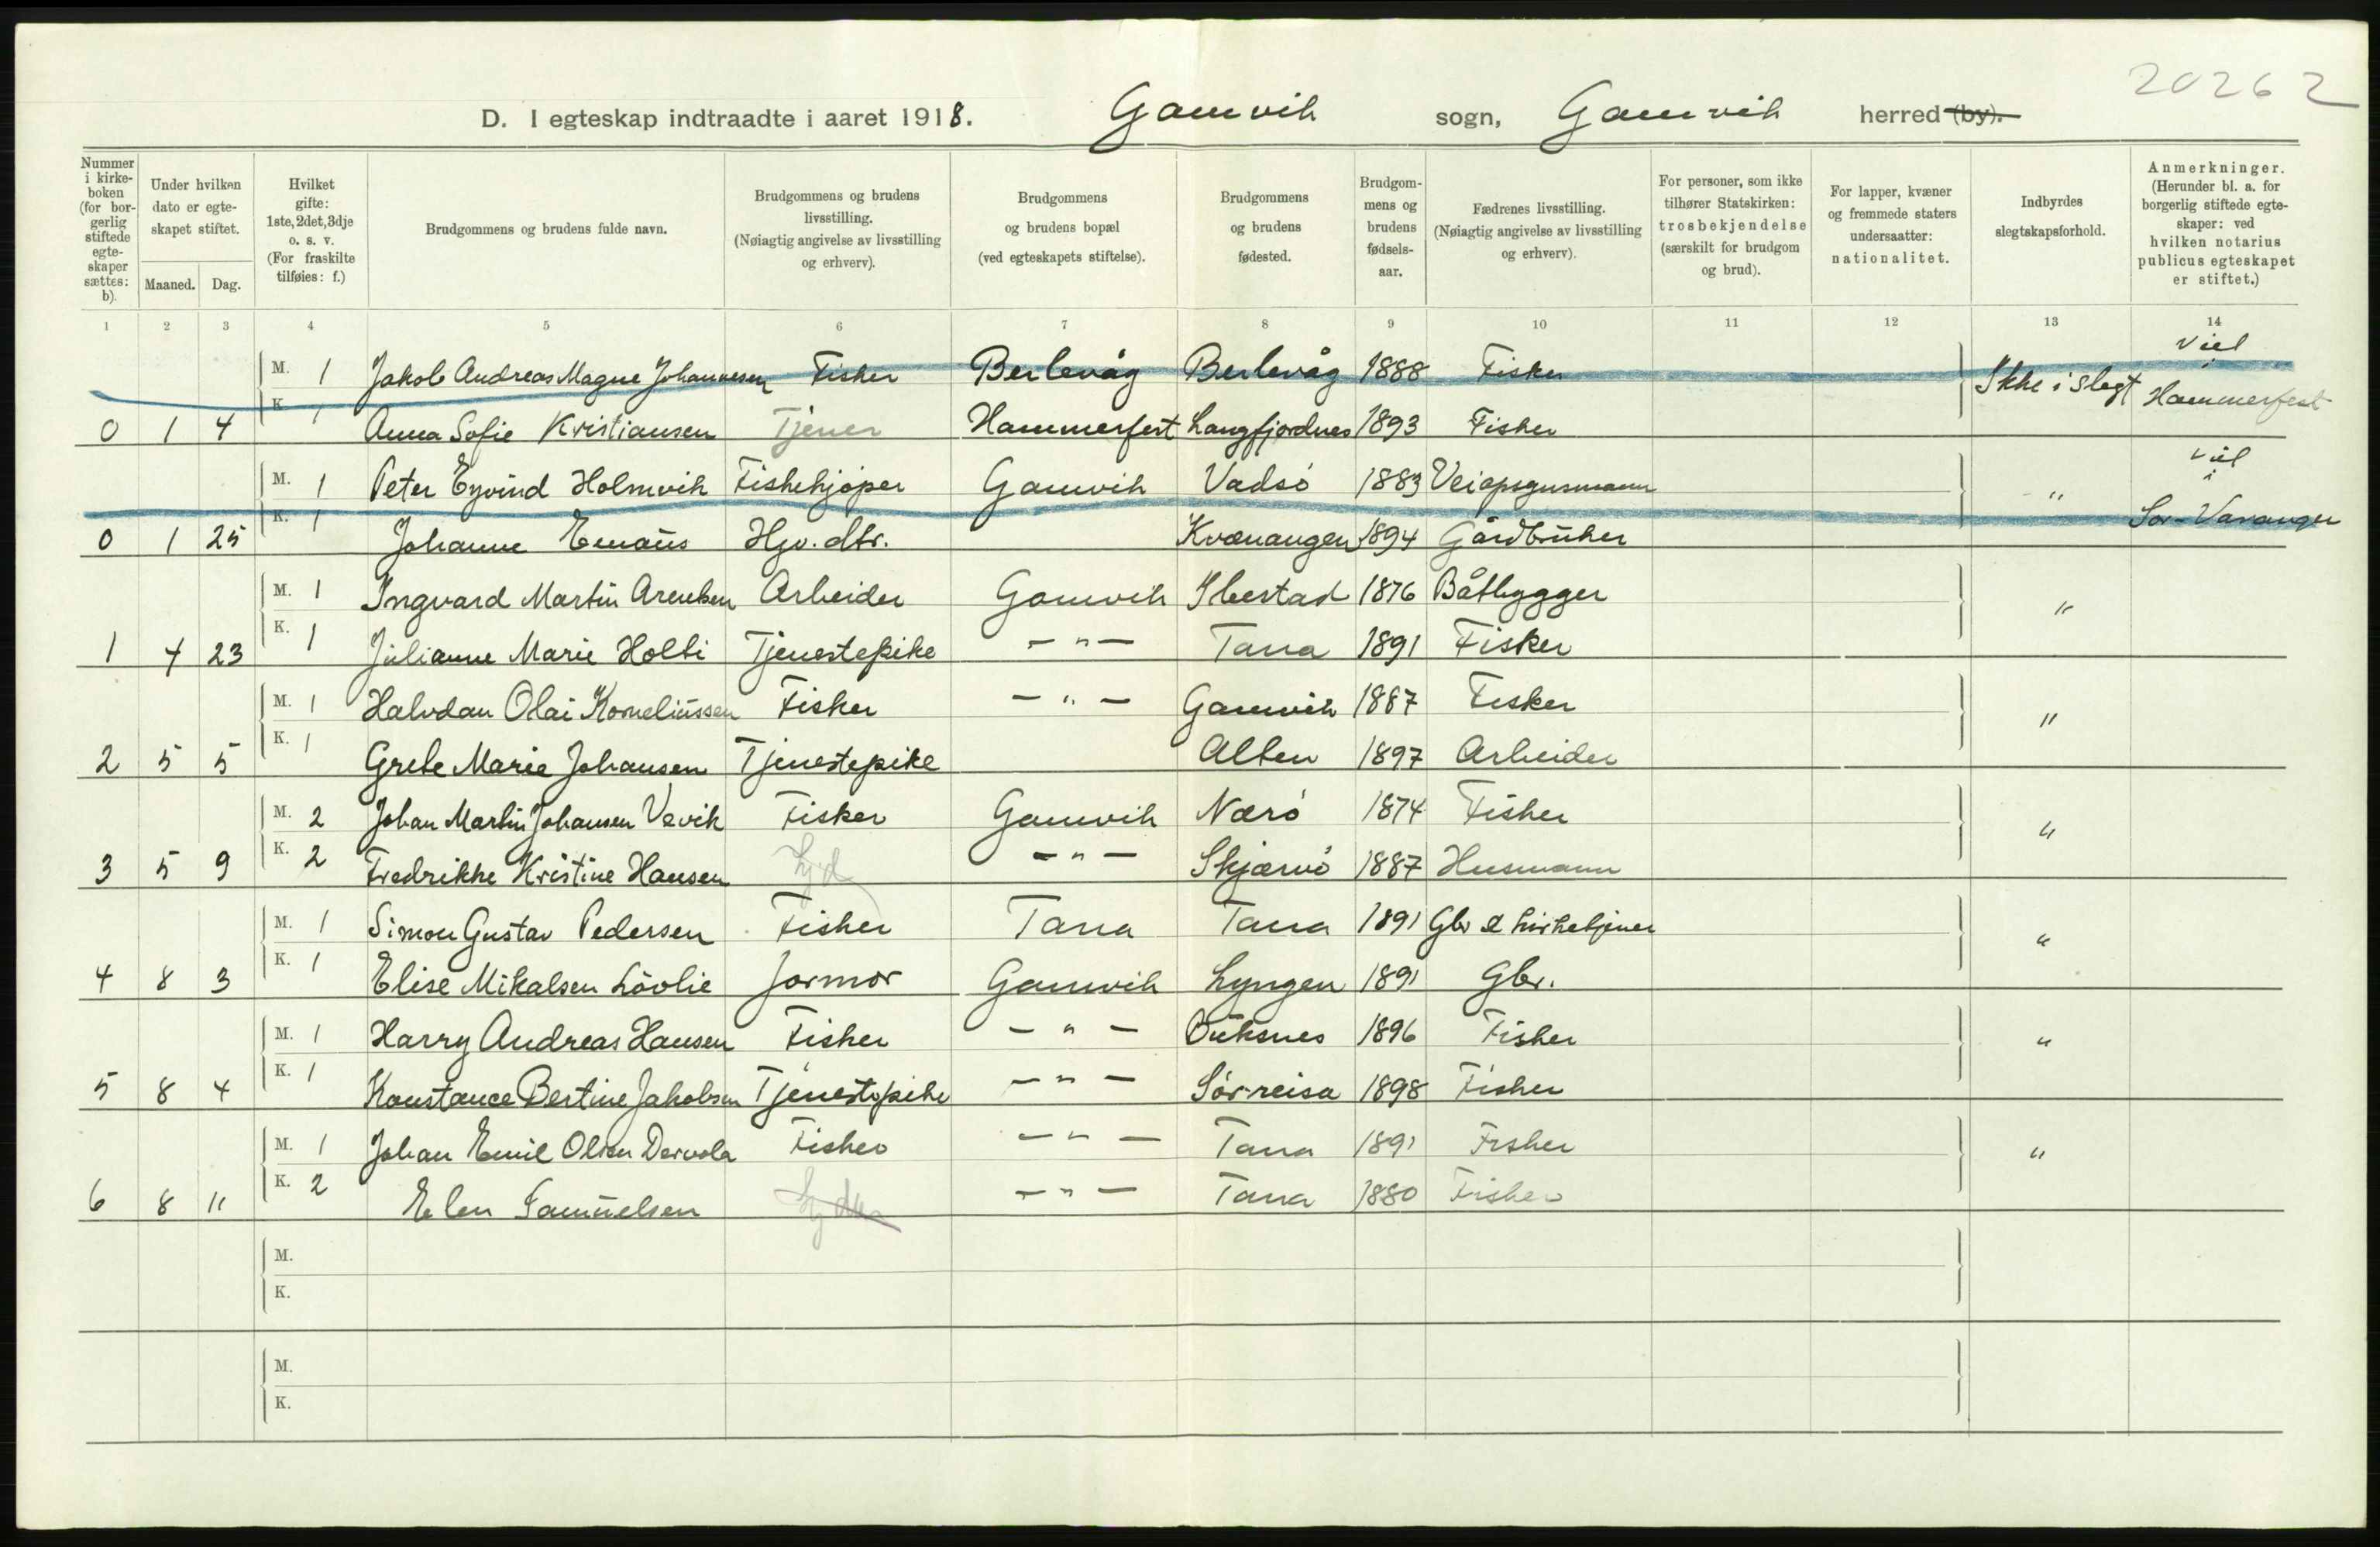 20262
D. I egteskap indtraadte i aaret 1918. Gamvik sogn, Gamvik herred (by).
Nummer i kirkeboken (for borgerlig stiftede egteskaper sættes: b).
Under hvilken dato er egteskapet stiftet.
Maaned. Dag.
Hvilket gifte: 1ste, 2det, 3dje o. s. v. (For fraskilte tilføies: f.)
Brudgommens og brudens fulde navn.
Brudgommens og brudens livsstilling. (Nøiagtig angivelse av livsstilling og erhverv).
Brudgommens og brudens bopæl (ved egteskapets stiftelse).
Brudgommens og brudens fødested.
Brudgommens og brudens fødselsaar.
Fædrenes livsstilling. (Nøiagtig angivelse av livsstilling og erhverv).
For personer, som ikke tilhører Statskirken: trosbekjendelse (særskilt for brudgom og brud).
For lapper, kvæner og fremmede staters undersaatter: nationalitet.
Indbyrdes slegtskapsforhold.
Anmerkninger. (Herunder bl. a. for borgerlig stiftede egteskaper: ved hvilken notarius publicus egteskapet er stiftet.)
1 2 3 4 5 6 7 8 9 10 11 12 13 14
M. 1 Jakob Andreas Magne Johannesen Fisker Berlevåg Berlevåg 1888 Fisker Ikke i slegt Viel i Hammerfest
0 1 4 K. 1 Anna Sofie Kristiansen Tjener Hammerfest Langfjordnes 1893 Fisker
M. 1 Peter Eyvind Holmvik Fiskekjøper Gamvik Vadsö 1883 Veiopsynsmann " viel i Sør-Varanger
0 1 25 K. 1 Johanne Emaus Hjv. dtr. Kvænangen 1894 Gårdbruker
M. 1 Ingvard Martin Arentsen Arbeider Gamvik Ibestad 1876 Båtbygger "
1 4 23 K. 1 Julianne Marie Holti Tjenestepike — " — Tana 1891 Fisker
M. 1 Halvdan Olai Korneliussen Fisker — " — Gamvik 1887 Fisker "
2 5 5 K. 1 Grete Marie Johansen Tjenestepike Alten 1897 Arbeider
M. 2 Johan Martin Johansen Vevik Fisker Gamvik Nærö 1874 Fisker "
3 5 9 K. 2 Fredrikke Kristine Hansen — " — Skjærvö 1887 Husmann
M. 1 Simon Gustav Pedersen Fisker Tana Tana 1891 Gbr & kirketjener "
4 8 3 K. 1 Elise Mikalsen Lövlie Jormor Gamvik Lyngen 1891 Gbr.
M. 1 Harry Andreas Hansen Fisker — " — Buksnes 1896 Fisker "
5 8 4 K. 1 Konstance Bertine Jakobsen Tjenestepike — " — Sörreisa 1898 Fisker
M. 1 Johan Emil Olsen Dervola Fisker — " — Tana 1891 Fisker "
6 8 11 K. 2 Elen Samuelsen — " — Tana 1880 Fisker
M.
K.
M.
K.